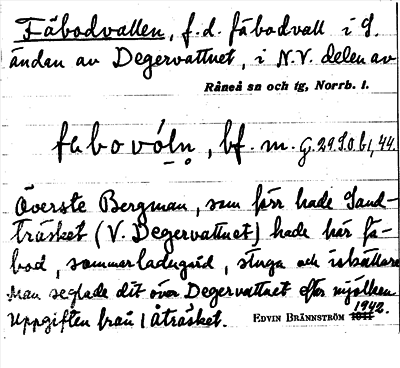 Fäbodvallen, f.d. fäbodvall i S.
ändan av Degervattnet, i N.V. delen av
Råneå sn och tg, Norrb. l.
fäbovó̩ln̩, bf. m. G. 29 S.O. b1, 44.
Överste Bergman, som förr hade Sand-
träsket (V. Degervattnet) hade här fä-
bod, sommarladugård, stuga och iskällare
Man seglade dit över Degervattnet efter mjölken
Uppgiften från Åträsket. EDVIN BRÄNNSTRÖM 1942.